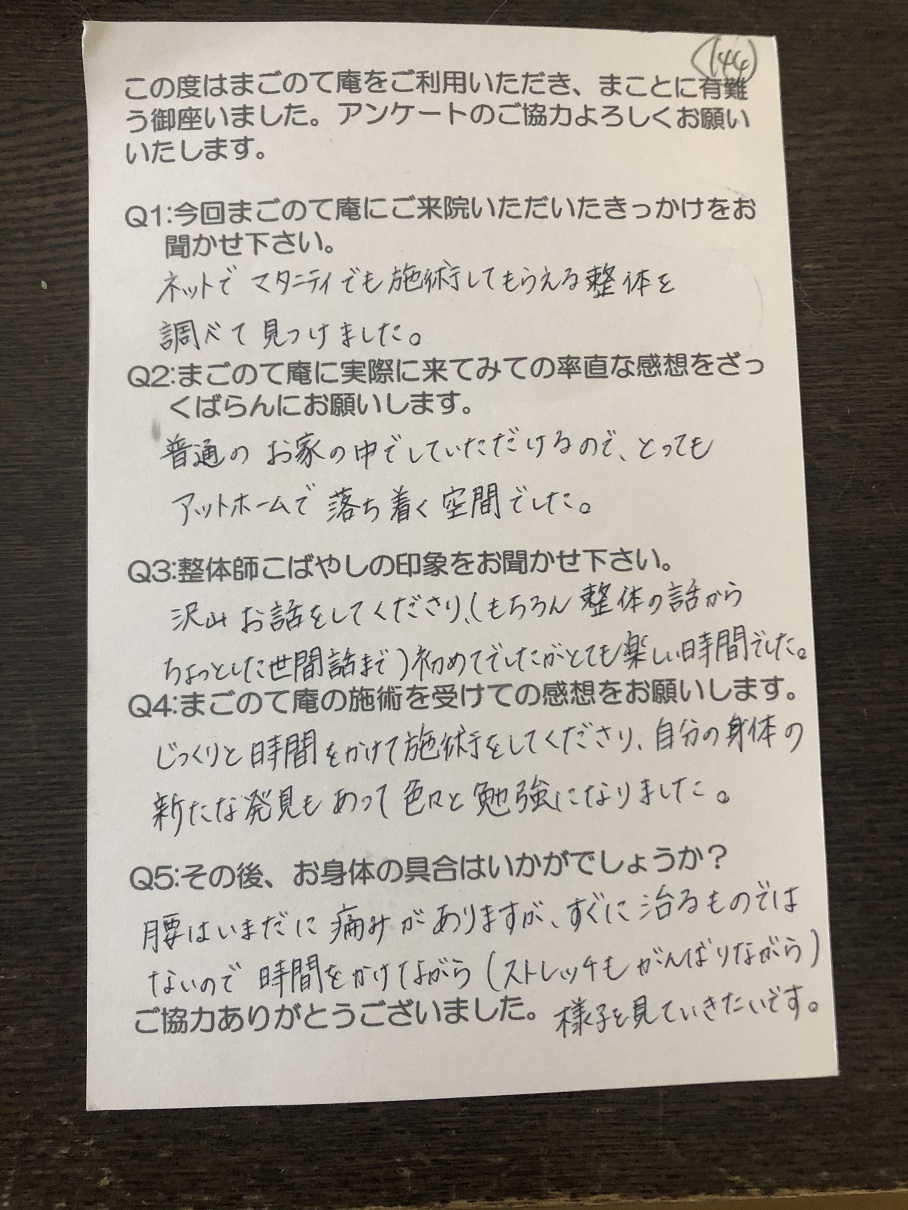 144
この度はまごのて庵をご利用いただき、まことに有難
う御座いました。アンケートのご協力よろしくお願い
いたします。
Q1:今回まごのて庵にご来院いただいたきっかけをお
聞かせ下さい。
ネットで マタニティでも施術してもらえる整体を
調べて見つけました。
Q2:まごのて庵に実際に来てみての率直な感想をざっ
くばらんにお願いします。
普通の お家の中でしていただけるので、とっても
アットホームで 落ち着く空間でした。
Q3:整体師こばやしの印象をお聞かせ下さい。
沢山 お話をしてくださり、(もちろん 整体の話から
ちょっとした世間話まで)初めてでしたがとても楽しい時間でした。
Q4:まごのて庵の施術を受けての感想をお願いします。
じっくりと時間をかけて施術をしてくださり、自分の身体の
新たな発見もあって色々と勉強になりました。
Q5:その後、お身体の具合はいかがでしょうか?
腰はいまだに 痛みがありますが、すぐに治るものでは
ないので 時間をかけながら(ストレッチもがんばりながら)
様子を見ていきたいです。
ご協力ありがとうございました。